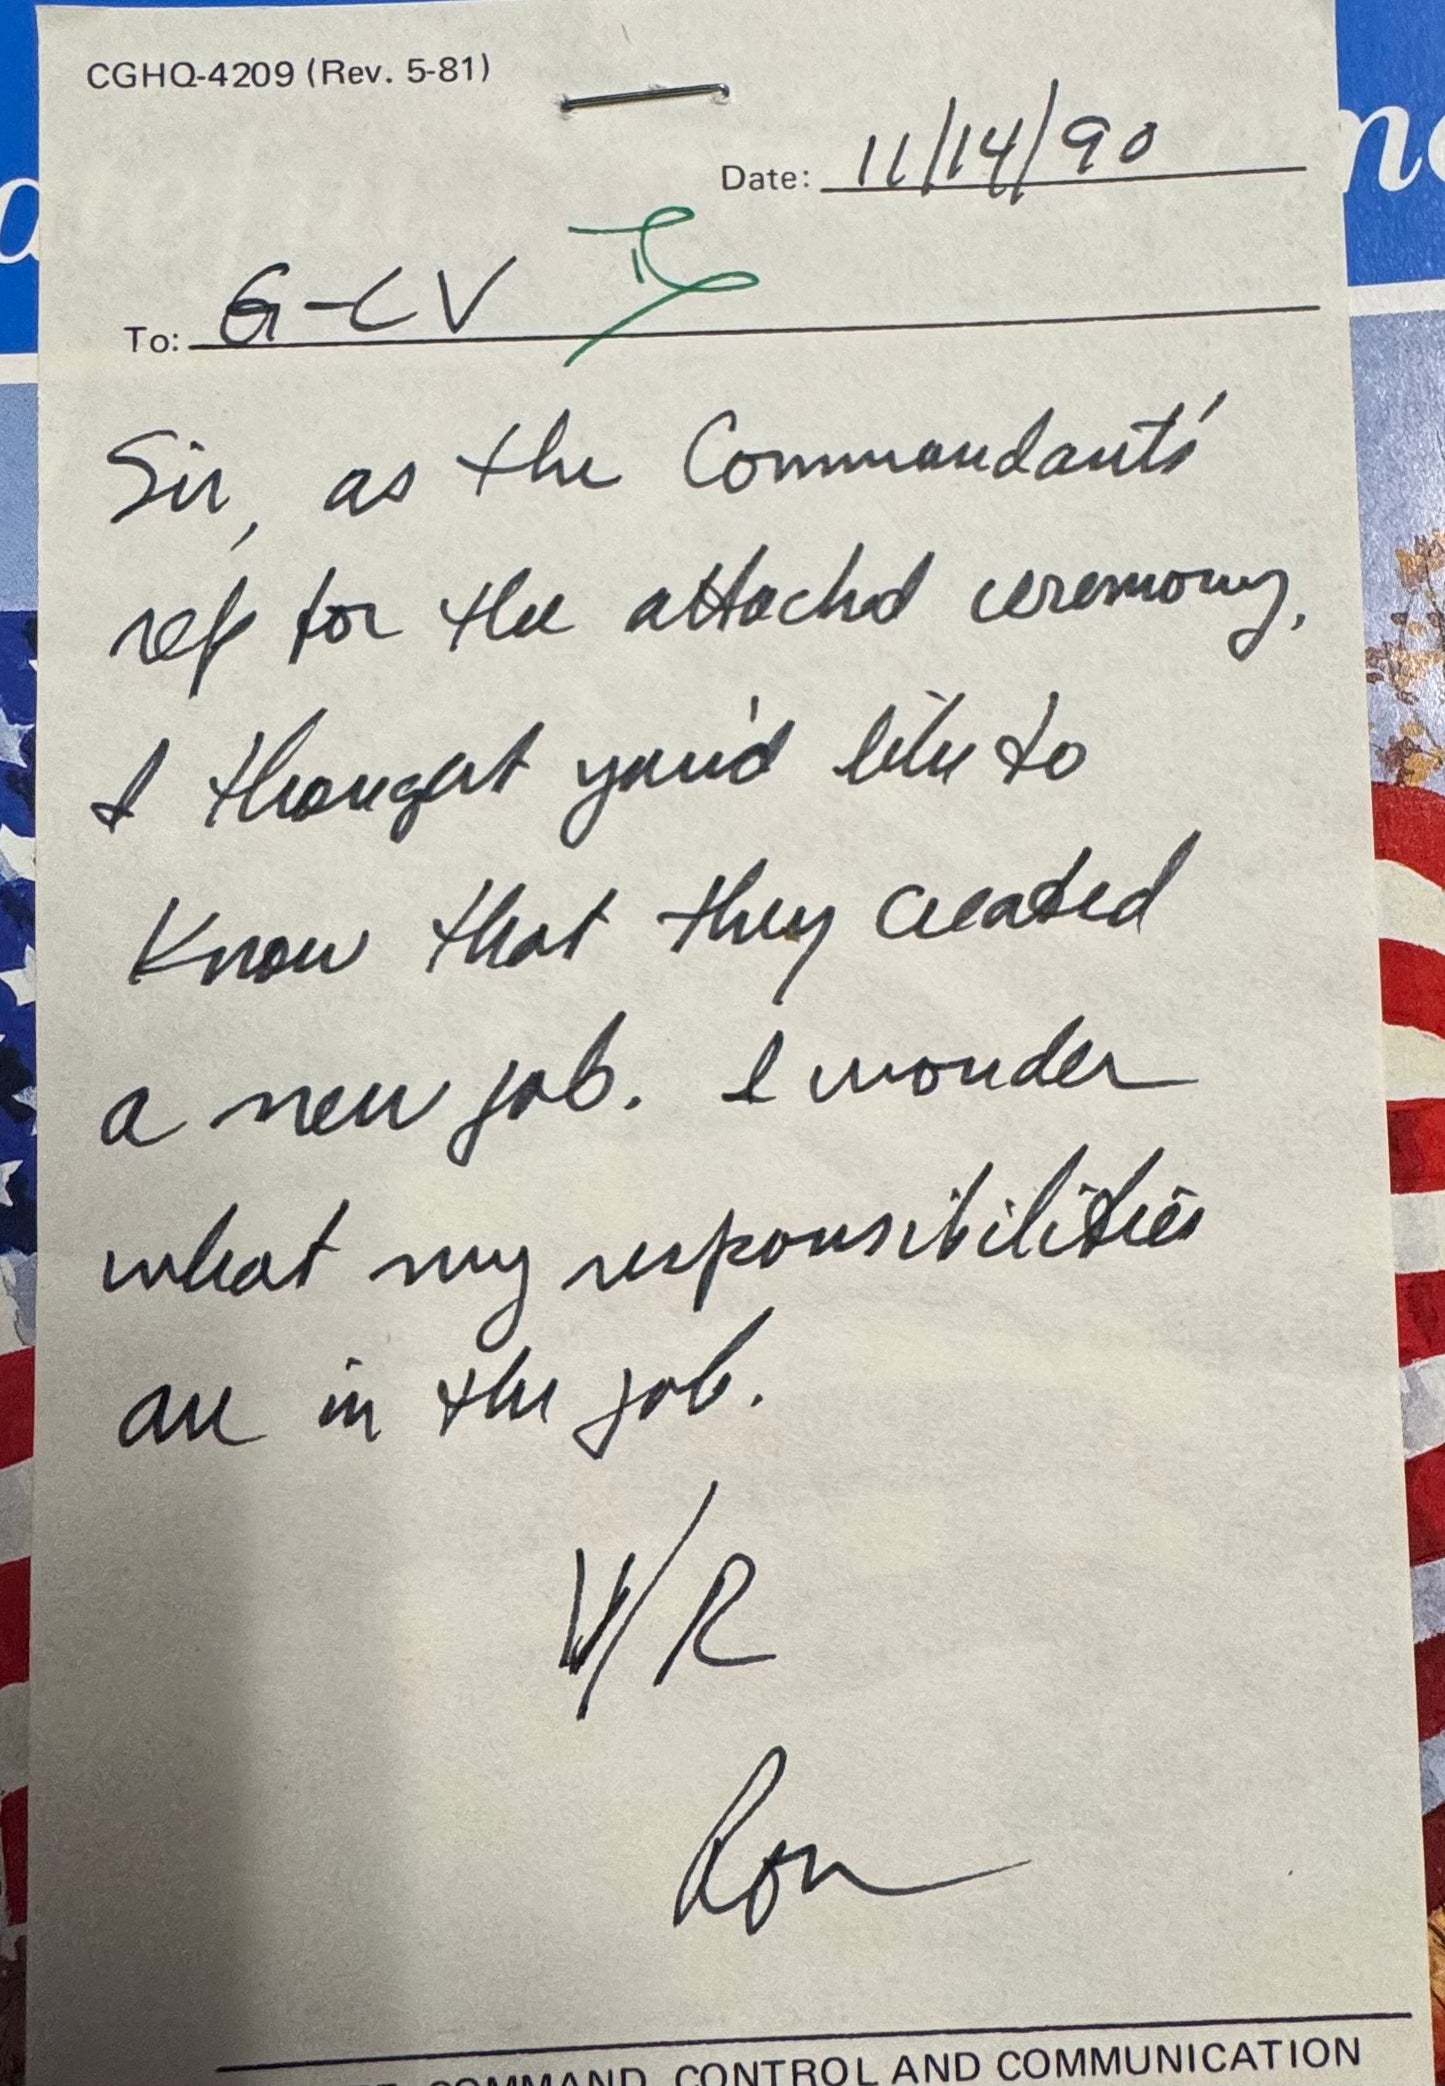 CGHQ-4209 (Rev. 5-81)
Date: 11/14/90
To: G-CV
Sir, as the Commandant's
rep for the attached ceremony,
I thought you'd like to
know that they created
a new job. I wonder
what my responsibilities
are in the job.
V/R
Ron
COMMAND, CONTROL AND COMMUNICATION